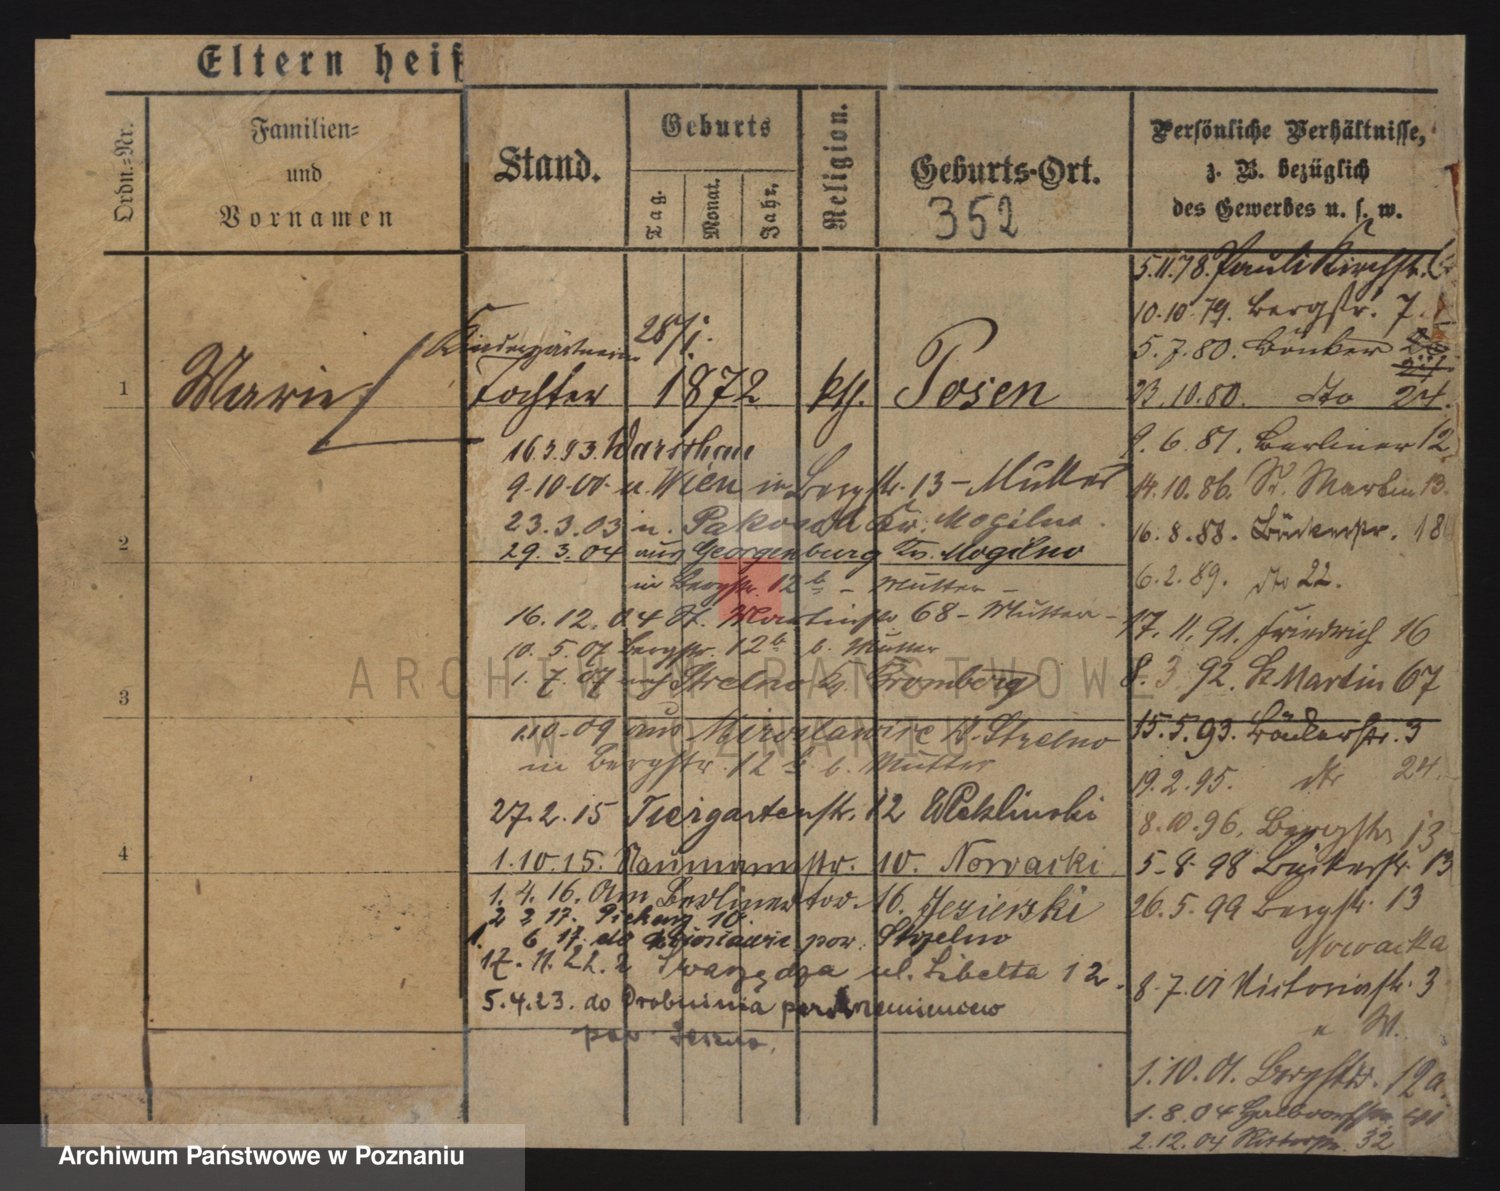 Eltern heiß
Ordn.-Nr.
Familien-
und
Vornamen
Stand.
Geburts
Tag.
Monat.
Jahr.
Religion.
Geburts-Ort.
352
Persönliche Verhältnisse,
z. B. bezüglich
des Gewerbes u. s. w.
1
Marie
Kindergärtnerin
Tochter
28/1.
1872
kth.
Posen
16.3.93. Warschau
9.10.00. u. Wien in Bergstr. 13 – Mutter
2
23.3.03 n. Pakosch Kr. Mogilno.
29.3.04 aus Georgenburg Kr. Mogilno
in Bergstr. 12b – Mutter –
16.12.04 St. Martinstr 68 – Mutter –
10.5.07 Bergstr. 12b b. Mutter
3
1.7.07 nach Strelno Kr. Bromberg
1.10.09 aus Miroslawice Kr. Strelno
in Bergstr. 12b b. Mutter
27.2.15 Tiergartenstr. 12
4
1.10.15. Naumannstr. 10. Nowacki
1.4.16. Am Berliner tor. 16. Jezierski
2 2 17. Piekary 10.
1. 6 17. do por. Strzelno
17.11.22. z ul. Libelta 12.
5.4.23. do Drobnina per Krzemieniewo
pow.
5.11.78. Pauli Kirchstr.
10.10.79. Bergstr. 7.
5.7.80. Bäcker
23.10.80. dto 24.
9.6.81. Berliner 12
14.10.86. St. Martin 13.
16.8.88. Bäckerstr.
6.2.89. dto 22.
17.11.91. Friedrich 16
8.3.92. St Martin 67
15.5.93. Bäckerstr. 3
19.2.95. dto 24.
8.10.96. Bergstr 13
5.8.98 Bäckerstr. 13
26.5.99 Bergstr. 13
Nowacka
8.7.01 Victoriastr. 3
1.10.01. Bergstr. 12a.
1.8.04 Halbdorfstr.
2.12.04 Ritterstr. 32
ARCHIWUM PAŃSTWOWE
W POZNANIU
Archiwum Państwowe w Poznaniu